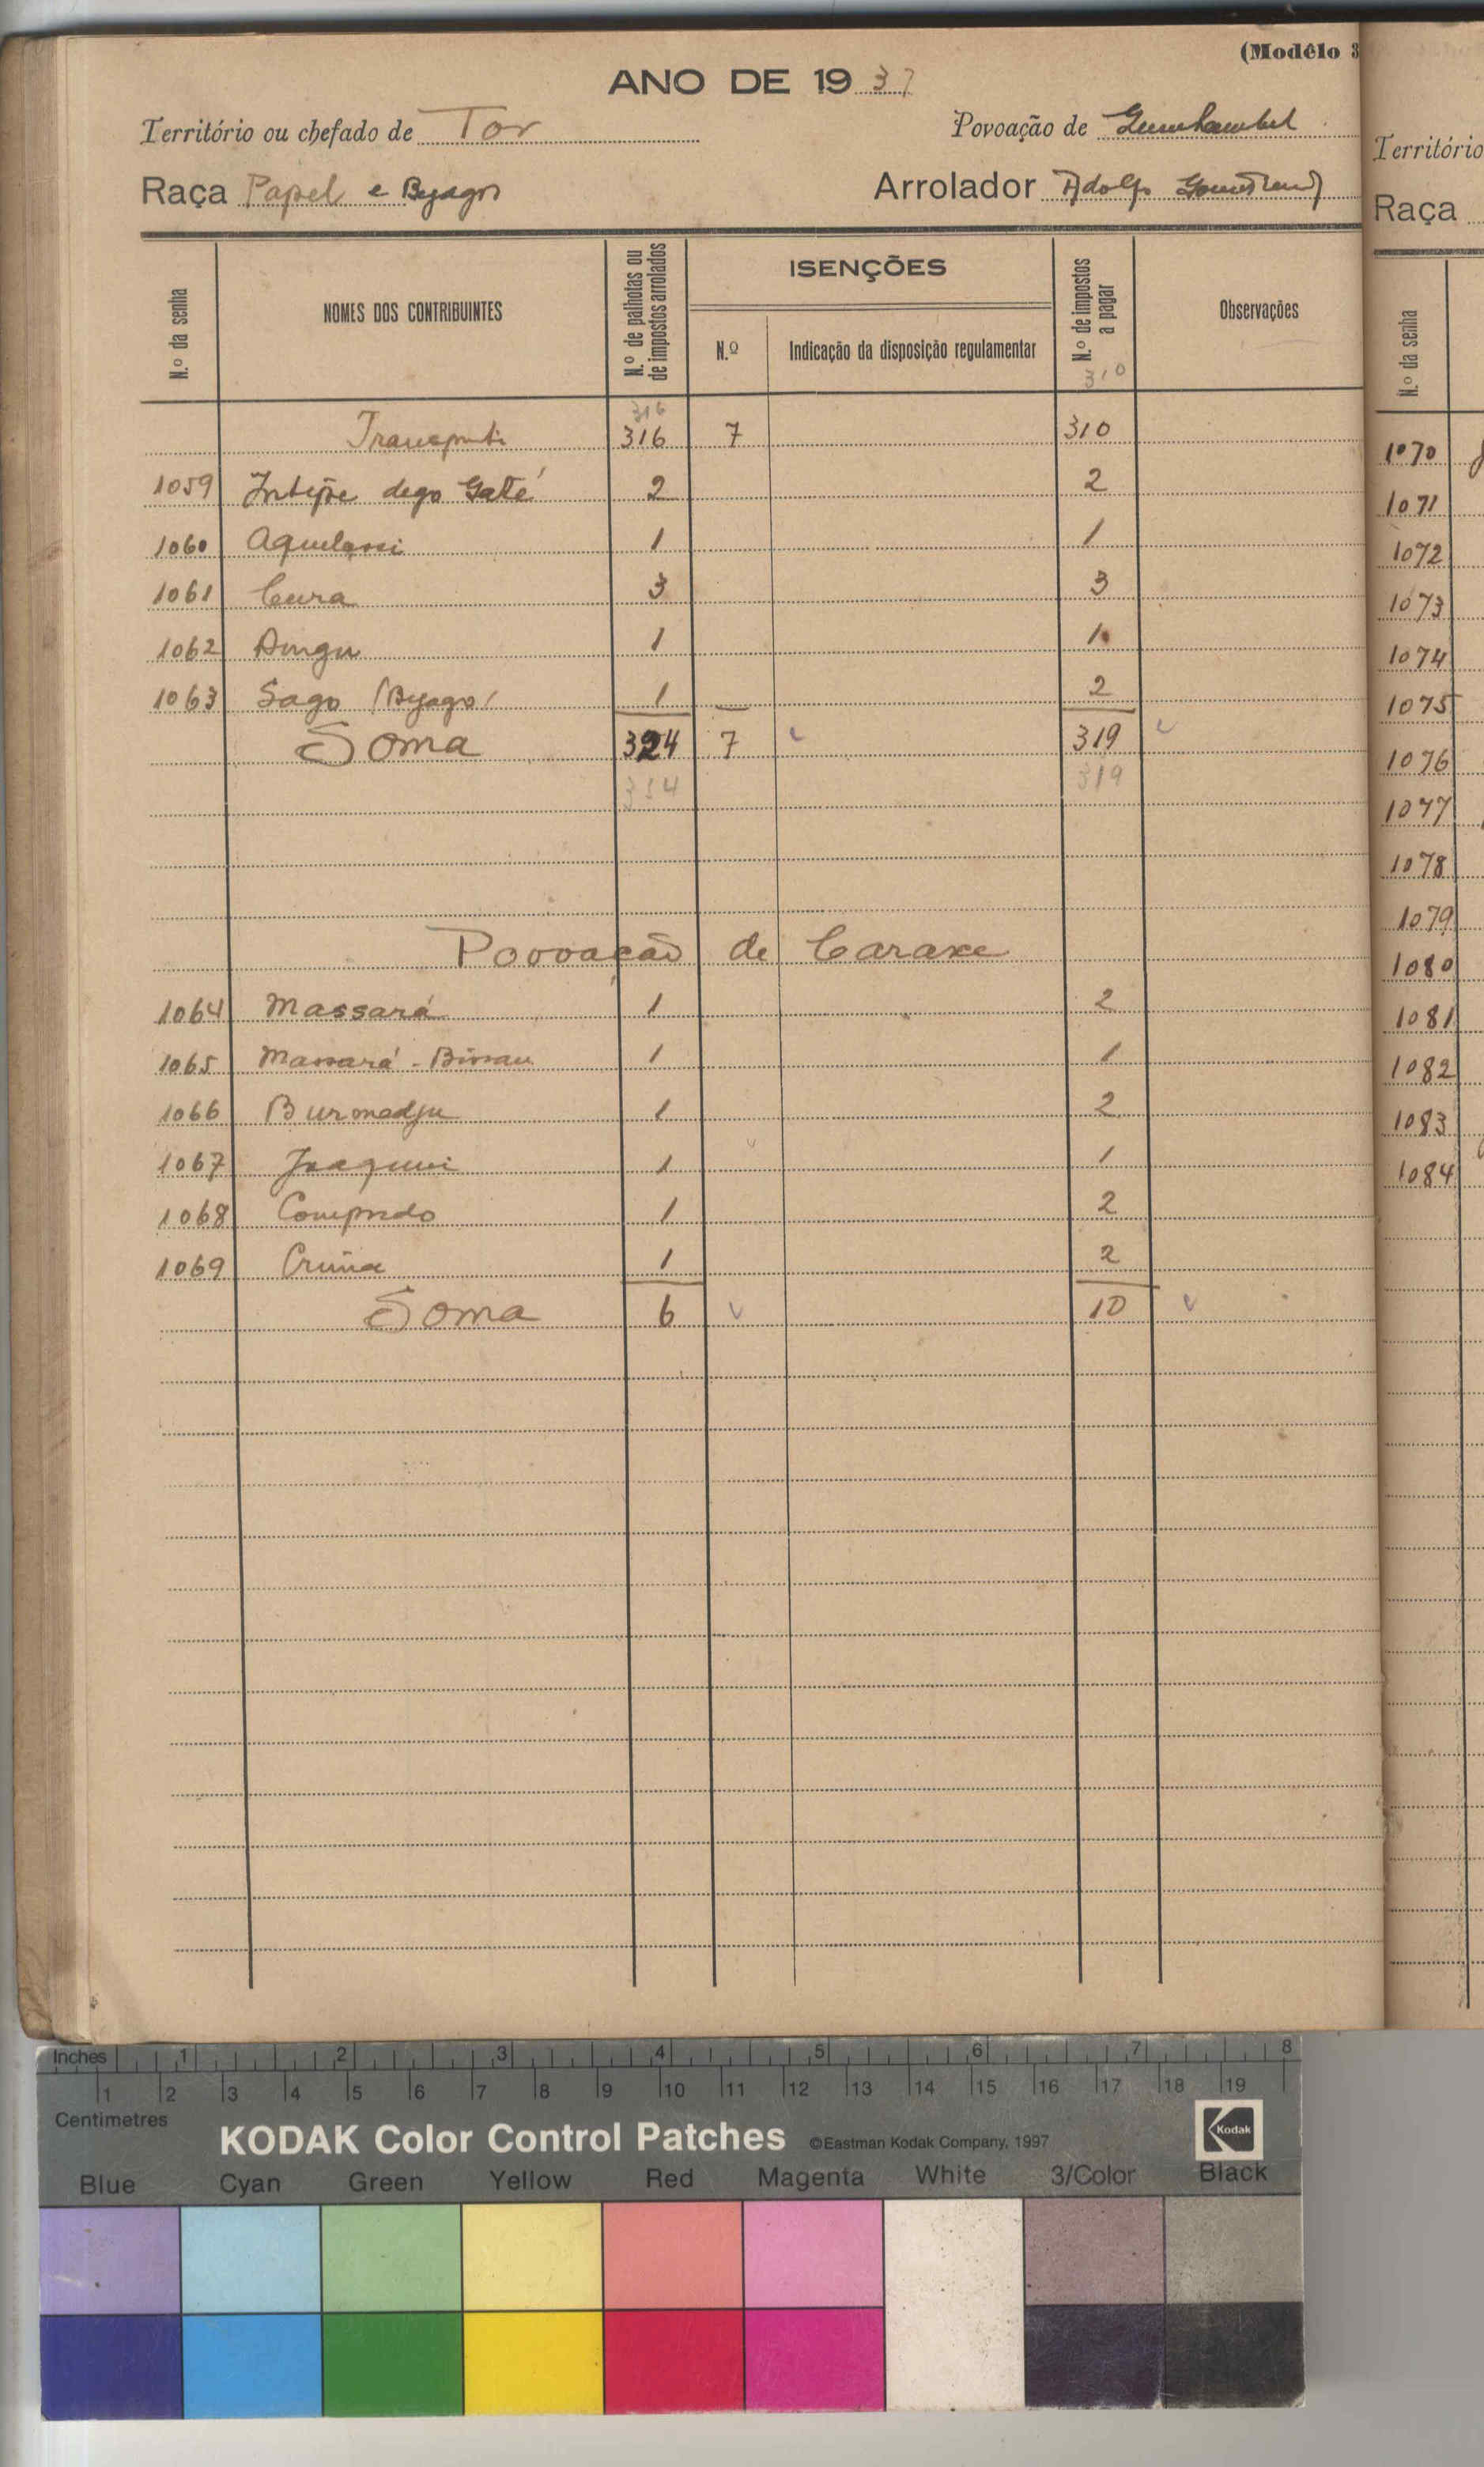 (Modêlo 3
ANO DE 1937
Território ou chefado de Tor
Povoação de
Raça Papel e Byagos
Arrolador Adolfo
N.º da senha
NOMES DOS CONTRIBUINTES
N.º de palhotas ou de impostos arrolados
ISENÇÕES
N.º
Indicação da disposição regulamentar
N.º de impostos a pagar
310
Observações
316
Transporte 316 7 310
1059 Intipe dego Gaté 2 2
1060 Aquelassi 1 1
1061 Cura 3 3
1062 Dingu 1 1
1063 Sago (Byago) 1 2
Soma 324 7 319
324 319
Povoação de Caraxe
1064 Massará 1 2
1065 Massará - Bissau 1 1
1066 Buromadju 1 2
1067 Joaquim 1 1
1068 Comprido 1 2
1069 1 2
Soma 6 10
Território
Raça
N.º da senha
1070
1071
1072
1073
1074
1075
1076
1077
1078
1079
1080
1081
1082
1083
1084
Inches 1 2 3 4 5 6 7 8
1 2 3 4 5 6 7 8 9 10 11 12 13 14 15 16 17 18 19
Centimetres
KODAK Color Control Patches ©Eastman Kodak Company, 1997 Kodak
Blue Cyan Green Yellow Red Magenta White 3/Color Black